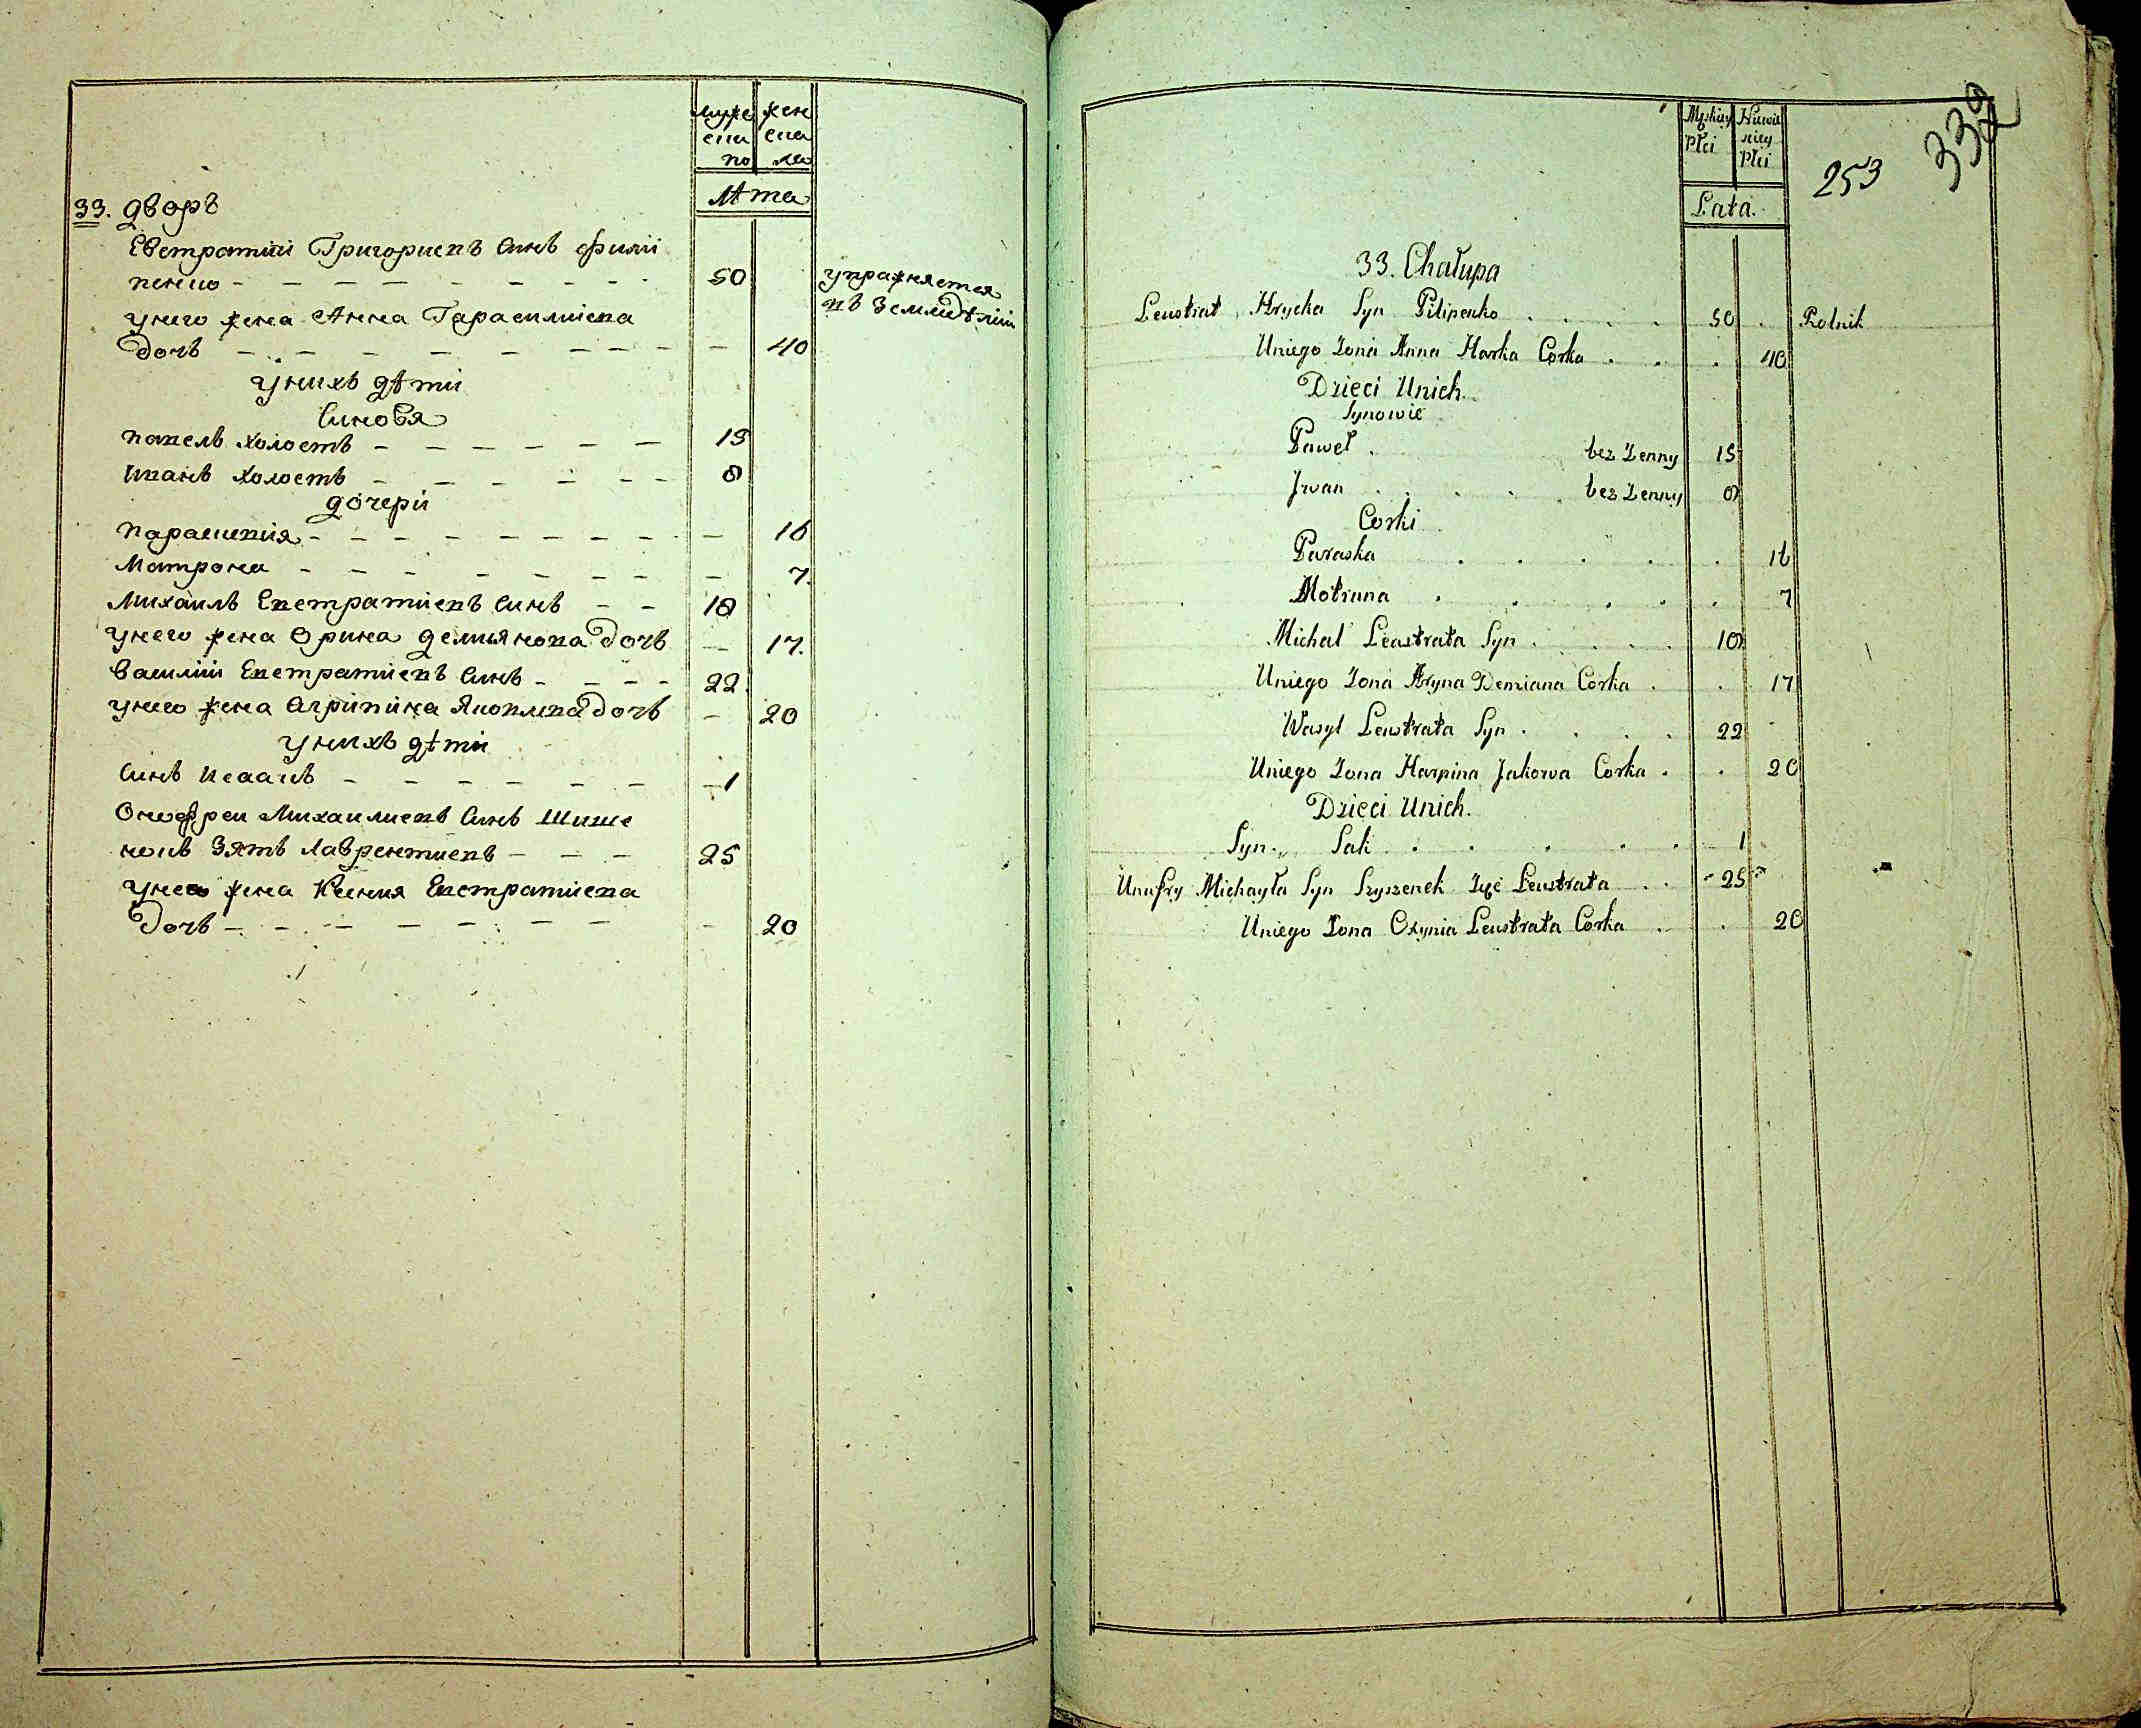 муже ска по
жен ска ла
Лѣта
33. дворъ
Евстратий Григориевъ Синъ Филип
пенко 50
упражняется
въ Земледѣлии
унего жена Анна Гарасимиева
дочь 40
унихъ дѣти
Синовя
павелъ холостъ 15
Иванъ холостъ 8
дочери
парасикия 16
Матрона 7.
Михаилъ Евстратиевъ Синъ 18
унего жена Орина демиянова дочь 17.
Василий Евстратиевъ Синъ 22
унего жена Агрипина Яковлева дочь 20
унихъ дѣти
Синъ Исаакъ 1
Онофреи Михаилиевъ Синъ Шише
нокъ Зять Лаврентиевъ 25
унего жена Ксения Евстратиева
дочь 20
253
339
Męskiey Płci
Niewieściey Płci
Lata.
33. Chałupa
Leustrat Hrycka Syn Pilipenko 50 Rolnik
Uniego Zona Anna Harka Corka 40
Dzieci Unich.
Synowie
Paweł bez Zenny 15
Iwan bez Zenny 8
Corki
Paraska 16
Motruna 7
Michal Leustrata Syn 18
Uniego Zona Aryna Demiana Corka 17
Wasyl Leustrata Syn 22
Uniego Zona Harpina Jakowa Corka 20
Dzieci Unich.
Syn. Sak 1
Unufry Michayła Syn Szyszenek Zięć Leustrata 25
Uniego Zona Oxynia Leustrata Corka 20